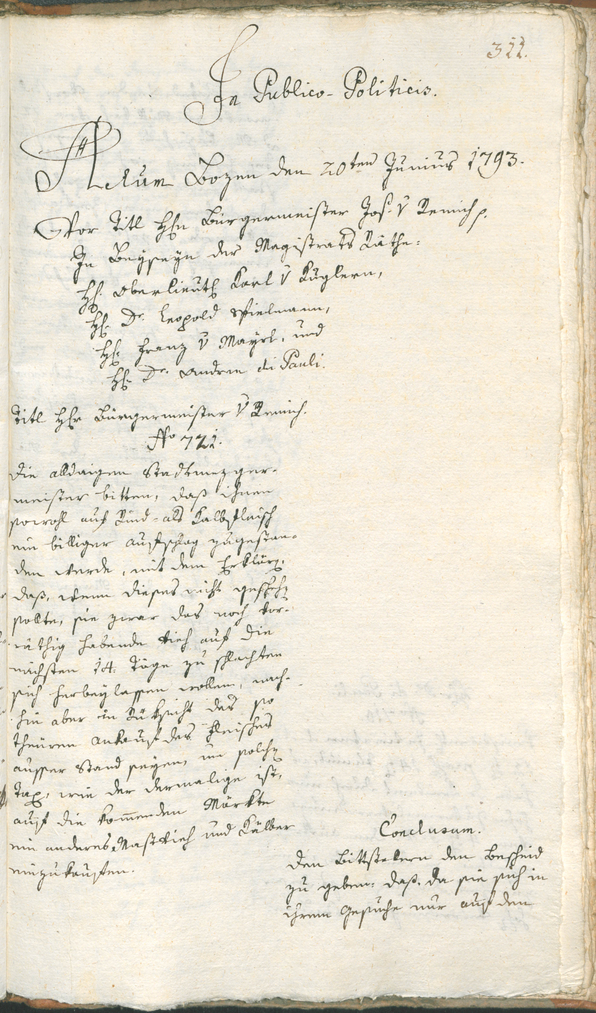 311.
In Publico-Politicis.
Actum Bozen den 20ten Junius 1793.
Vor Titl Hhn Bürgermeister Jos. v Remich p.
In Beyseyn der Magistrats Räthe:
Hh. Oberlieut Karl v Kuglern,
Hh. Dr. Leopold Spielmann,
Hh. Franz v Mayrl, und
Hh. Dr. Andree di Pauli.
Titl Hhr Bürgermeister v Remich.
No 721.
Die alldaigen Stadtmezger-
meister bitten, daß ihnen
sowohl auf Rind- als Kalbfleisch
ein billiger Aufschlag zugestan-
den werde, mit dem Erklären,
daß, wenn dieses nicht geschehen
sollte, sie zwar das noch vor-
räthig habende Vieh auf die
nächsten 14 Täge zu schlachten
sich herbeylassen wollen, nach-
hin aber in Rüksicht des so
theuren Ankaufs des Fleisches
ausser Stand seyen, um solche
Tax, wie der dermalige ist,
auf die kommenden Märkte
ein anderes Mastvieh und Kälber
einzukaufen.
Conclusum.
Den Bittstellern den Bescheid
zu geben: daß, da sie sich in
ihrem Gesuche nur auf den